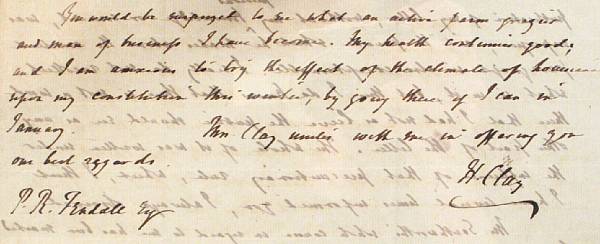 You would be surprized to see what an active farmer grazier
and man of business I have become. My health continues good;
and I am anxious to try the effect of the climate of Louisiana
upon my constitution this winter, by going there if I can in
January. Mrs Clay unites with me in offering you
our best regards.
H. Clay
P. R. Fendall Esq